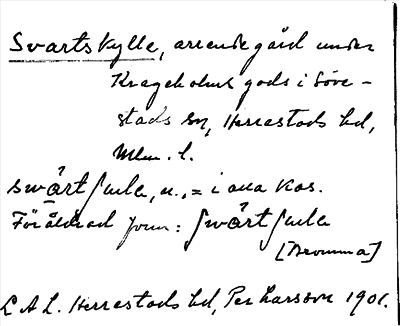 Svartskylle, arrendegård under
Krageholms gods i Söve-
stads sn, Herrestads hd,
Mlm. l.
swårt ʃɯlə, n., = i alla kas.
Föråldrad form: ʃwårt ʃɯlə
[Bromma]
L A L. Herrestads hd, Per Larsson 1901.